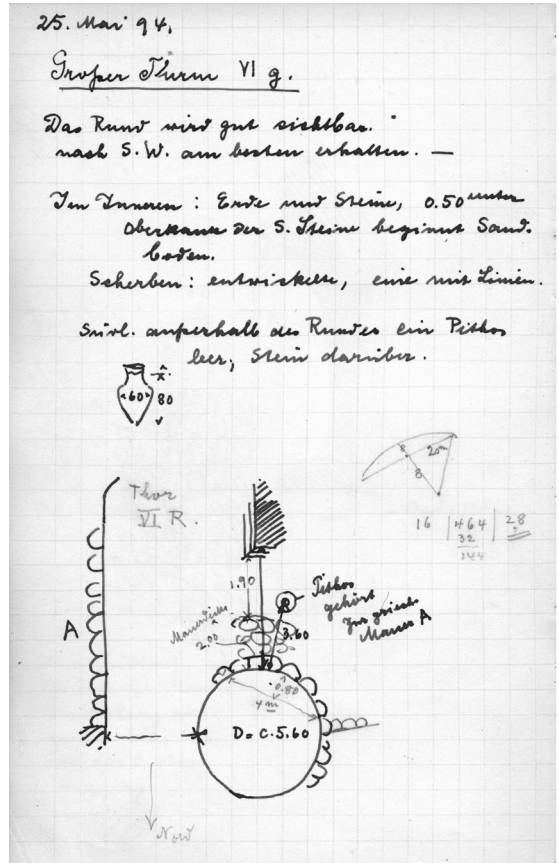 25. Mai 94.
Großer Thurm VI g.
Das Rund wird gut sichtbar.
nach S.W. am besten erhalten. —
Im Inneren : Erde und Steine, 0.50 unter
Oberkante der S. Steine beginnt Sand-
boden.
Scherben : entwickelte, eine mit Linien.
Südl. außerhalb des Rundes ein Pithos
leer, Stein darüber.
60
80
8
20m
8
Thor
VI R.
16 | 464 | 28
32
144
1.90
Pithos
gehört
zur griech.
Mauer A
A
Mauerdicke
2.00
3.60
0.80
4 m
D = c. 5.60
Nord